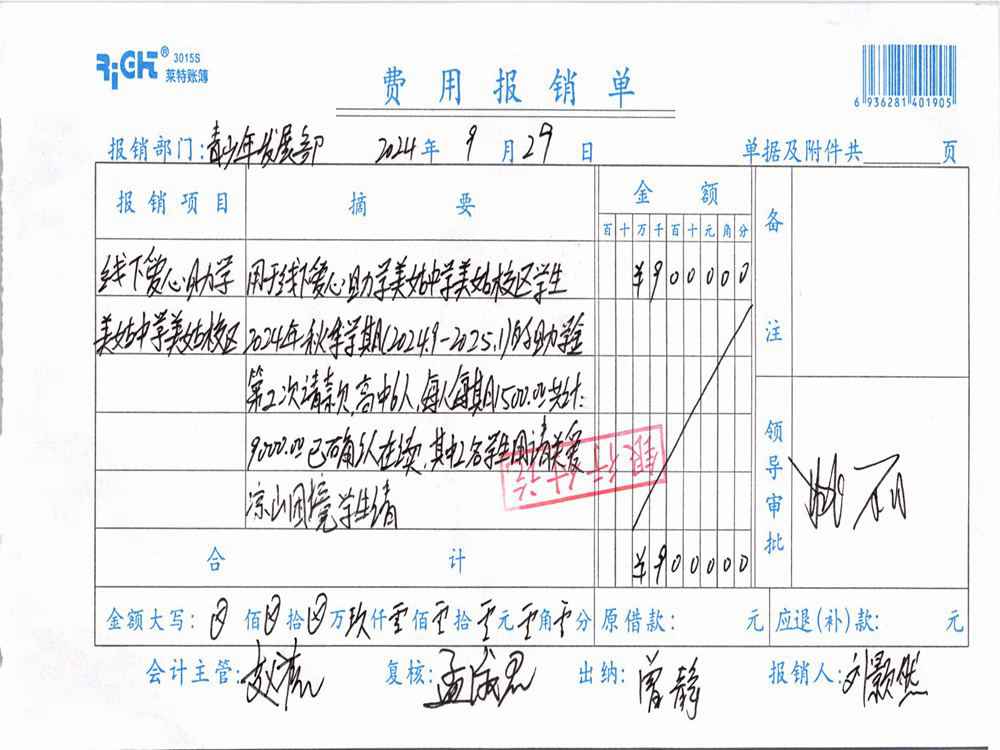 RiGHT® 3015S
莱特账簿
费用报销单
6 936281 401905
报销部门:青少年发展部 2024年9月29日 单据及附件共 页
报销项目 摘要 金额 备注
百十万千百十元角分
线下爱心助学 用于线下爱心助学美姑中学美姑校区学生 ¥900000
美姑中学美姑校区 2024年秋季学期(2024.9-2025.1)的助学金
第2次请款,高中6人,每人每期1500.00共计:
9000.00已确认在读,其中2名学生申请关爱
凉山困境学生绩
银行付讫
领导审批
合计 ¥900000
金额大写:⊗佰⊗拾⊗万玖仟零佰零拾零元零角零分 原借款: 元 应退(补)款: 元
会计主管: 复核:孟成思 出纳:曾静 报销人:刘颢然